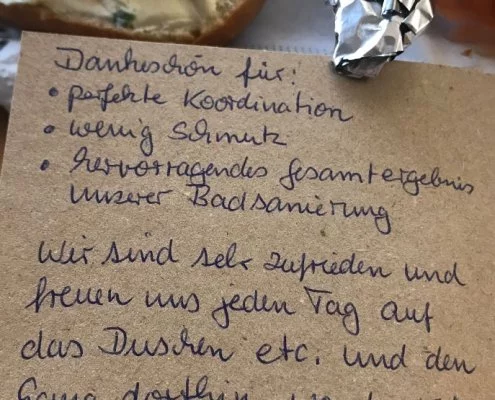 Dankeschön für:
• perfekte Koordination
• wenig Schmutz
• hervorragendes Gesamtergebnis
unserer Badsanierung
Wir sind sehr zufrieden und
freuen uns jeden Tag auf
das Duschen etc. und den
Gang dorthin